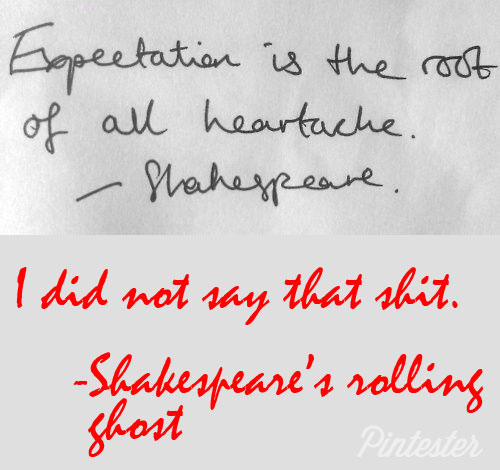 Expectation is the root
of all heartache.
- Shakespeare.
I did not say that shit.
-Shakespeare's rolling
ghost
Pintester